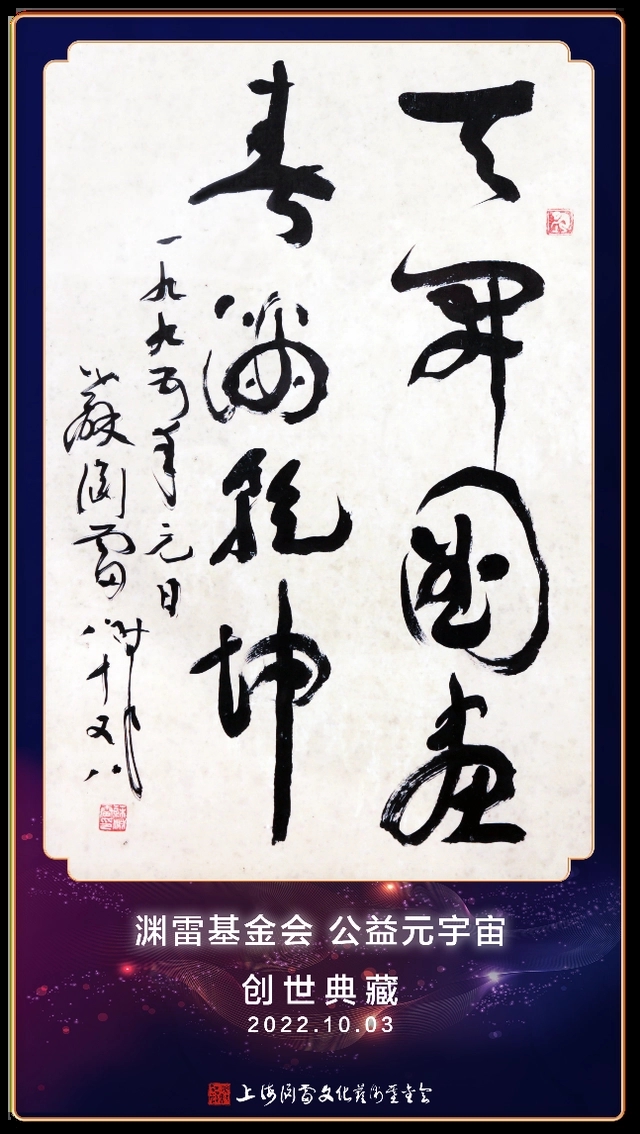 天開圖畫
春滿乾坤
一九九五年元日
蘇淵雷
时年八十又八
渊雷基金会 公益元宇宙
创世典藏
2022.10.03
上海渊雷文化艺术基金会